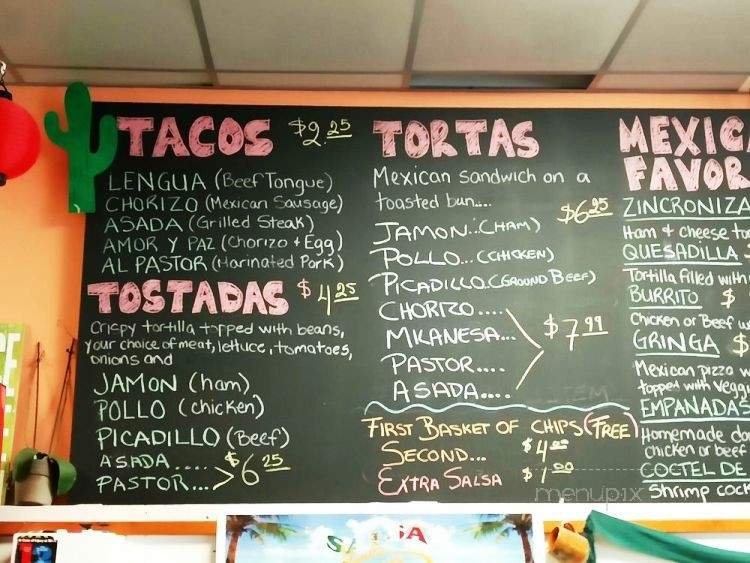 TACOS $2.25
LENGUA (Beef Tongue)
CHORIZO (Mexican Sausage)
ASADA (Grilled Steak)
AMOR Y PAZ (Chorizo + Egg)
AL PASTOR (Marinated Pork)
TOSTADAS $4.25
Crispy tortilla topped with beans,
your choice of meat, lettuce, tomatoes,
onions and
JAMON (ham)
POLLO (chicken)
PICADILLO (Beef)
ASADA....
PASTOR...
$6.25
TORTAS
Mexican sandwich on a
toasted bun....
$6.25
JAMON..(HAM)
POLLO...(CHICKEN)
PICADILLO..(GROUND BEEF)
CHORIZO....
MKANESA...
PASTOR....
ASADA....
$7.99
FIRST BASKET OF CHIPS (FREE)
SECOND... $4.00
EXTRA SALSA $1.00
MEXICA
FAVOR
ZINCRONIZA
Ham & cheese to
QUESADILLA
Tortilla filled with
BURRITO $
Chicken or Beef w
GRINGA $
Mexican pizza w
topped with vegg
EMPANADAS
Homemade do
chicken or beef
COCTEL DE
Shrimp cock
menupix
SALSA